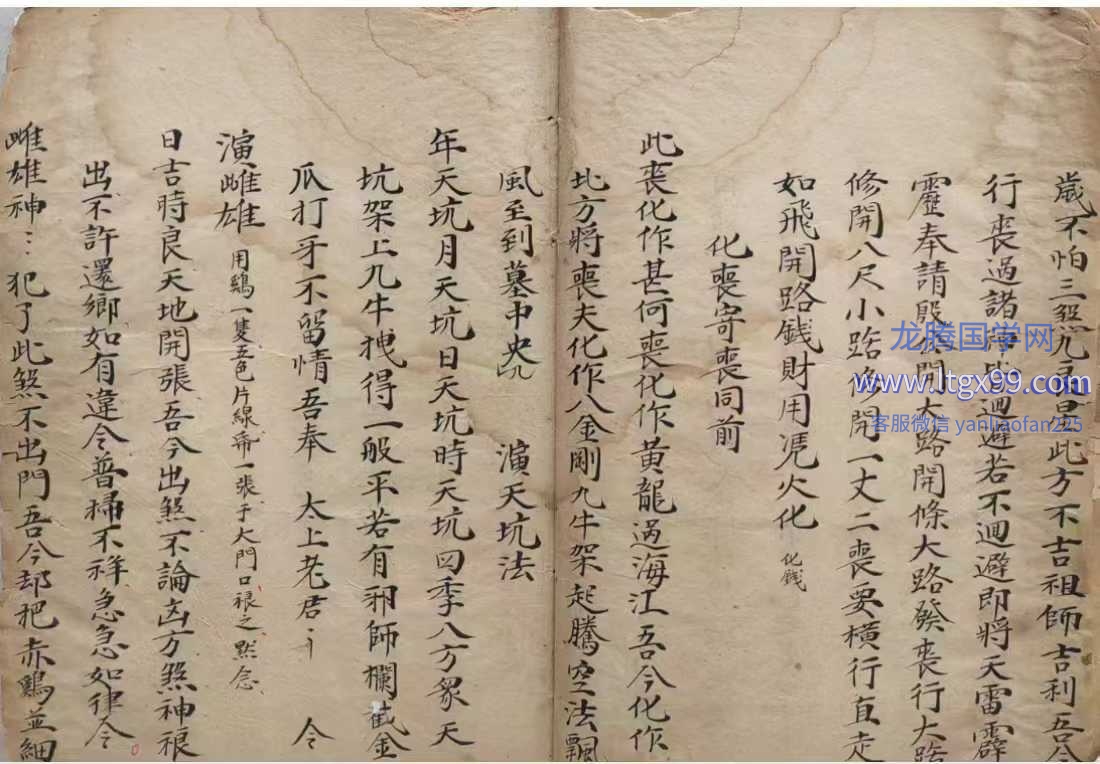 歲不怕三𣧑九良星此方不吉祖師吉利吾今
行喪過諸 皆迴避若不迴避即將天雷霹
靂奉請殷 開大路開條大路發喪行大路
修開八尺小路修開一丈二喪要橫行直走
如飛開路錢財用凴火化 化錢
化喪寄喪同前
此喪化作甚何喪化作黃龍過海江吾今化作
北方將喪夫化作八金剛九牛架起騰空法飄
風至到墓中央 演天坑法
年天坑月天坑日天坑時天坑四季八方眾天
坑架上九牛拽得一般平若有邪師欄截金
瓜打牙不留情吾奉 太上老君 令
演雌雄 用鷄一隻五色片線 一張于大門口 之黙念
日吉時良天地開張吾今出煞不論凶方煞神
出不許還鄉如有違令普掃不祥急急如律令
雌雄神 犯了此煞不出門吾今却把赤鷄並細
龙腾国学网
www.ltgx99.com
客服微信 yanliaofan225